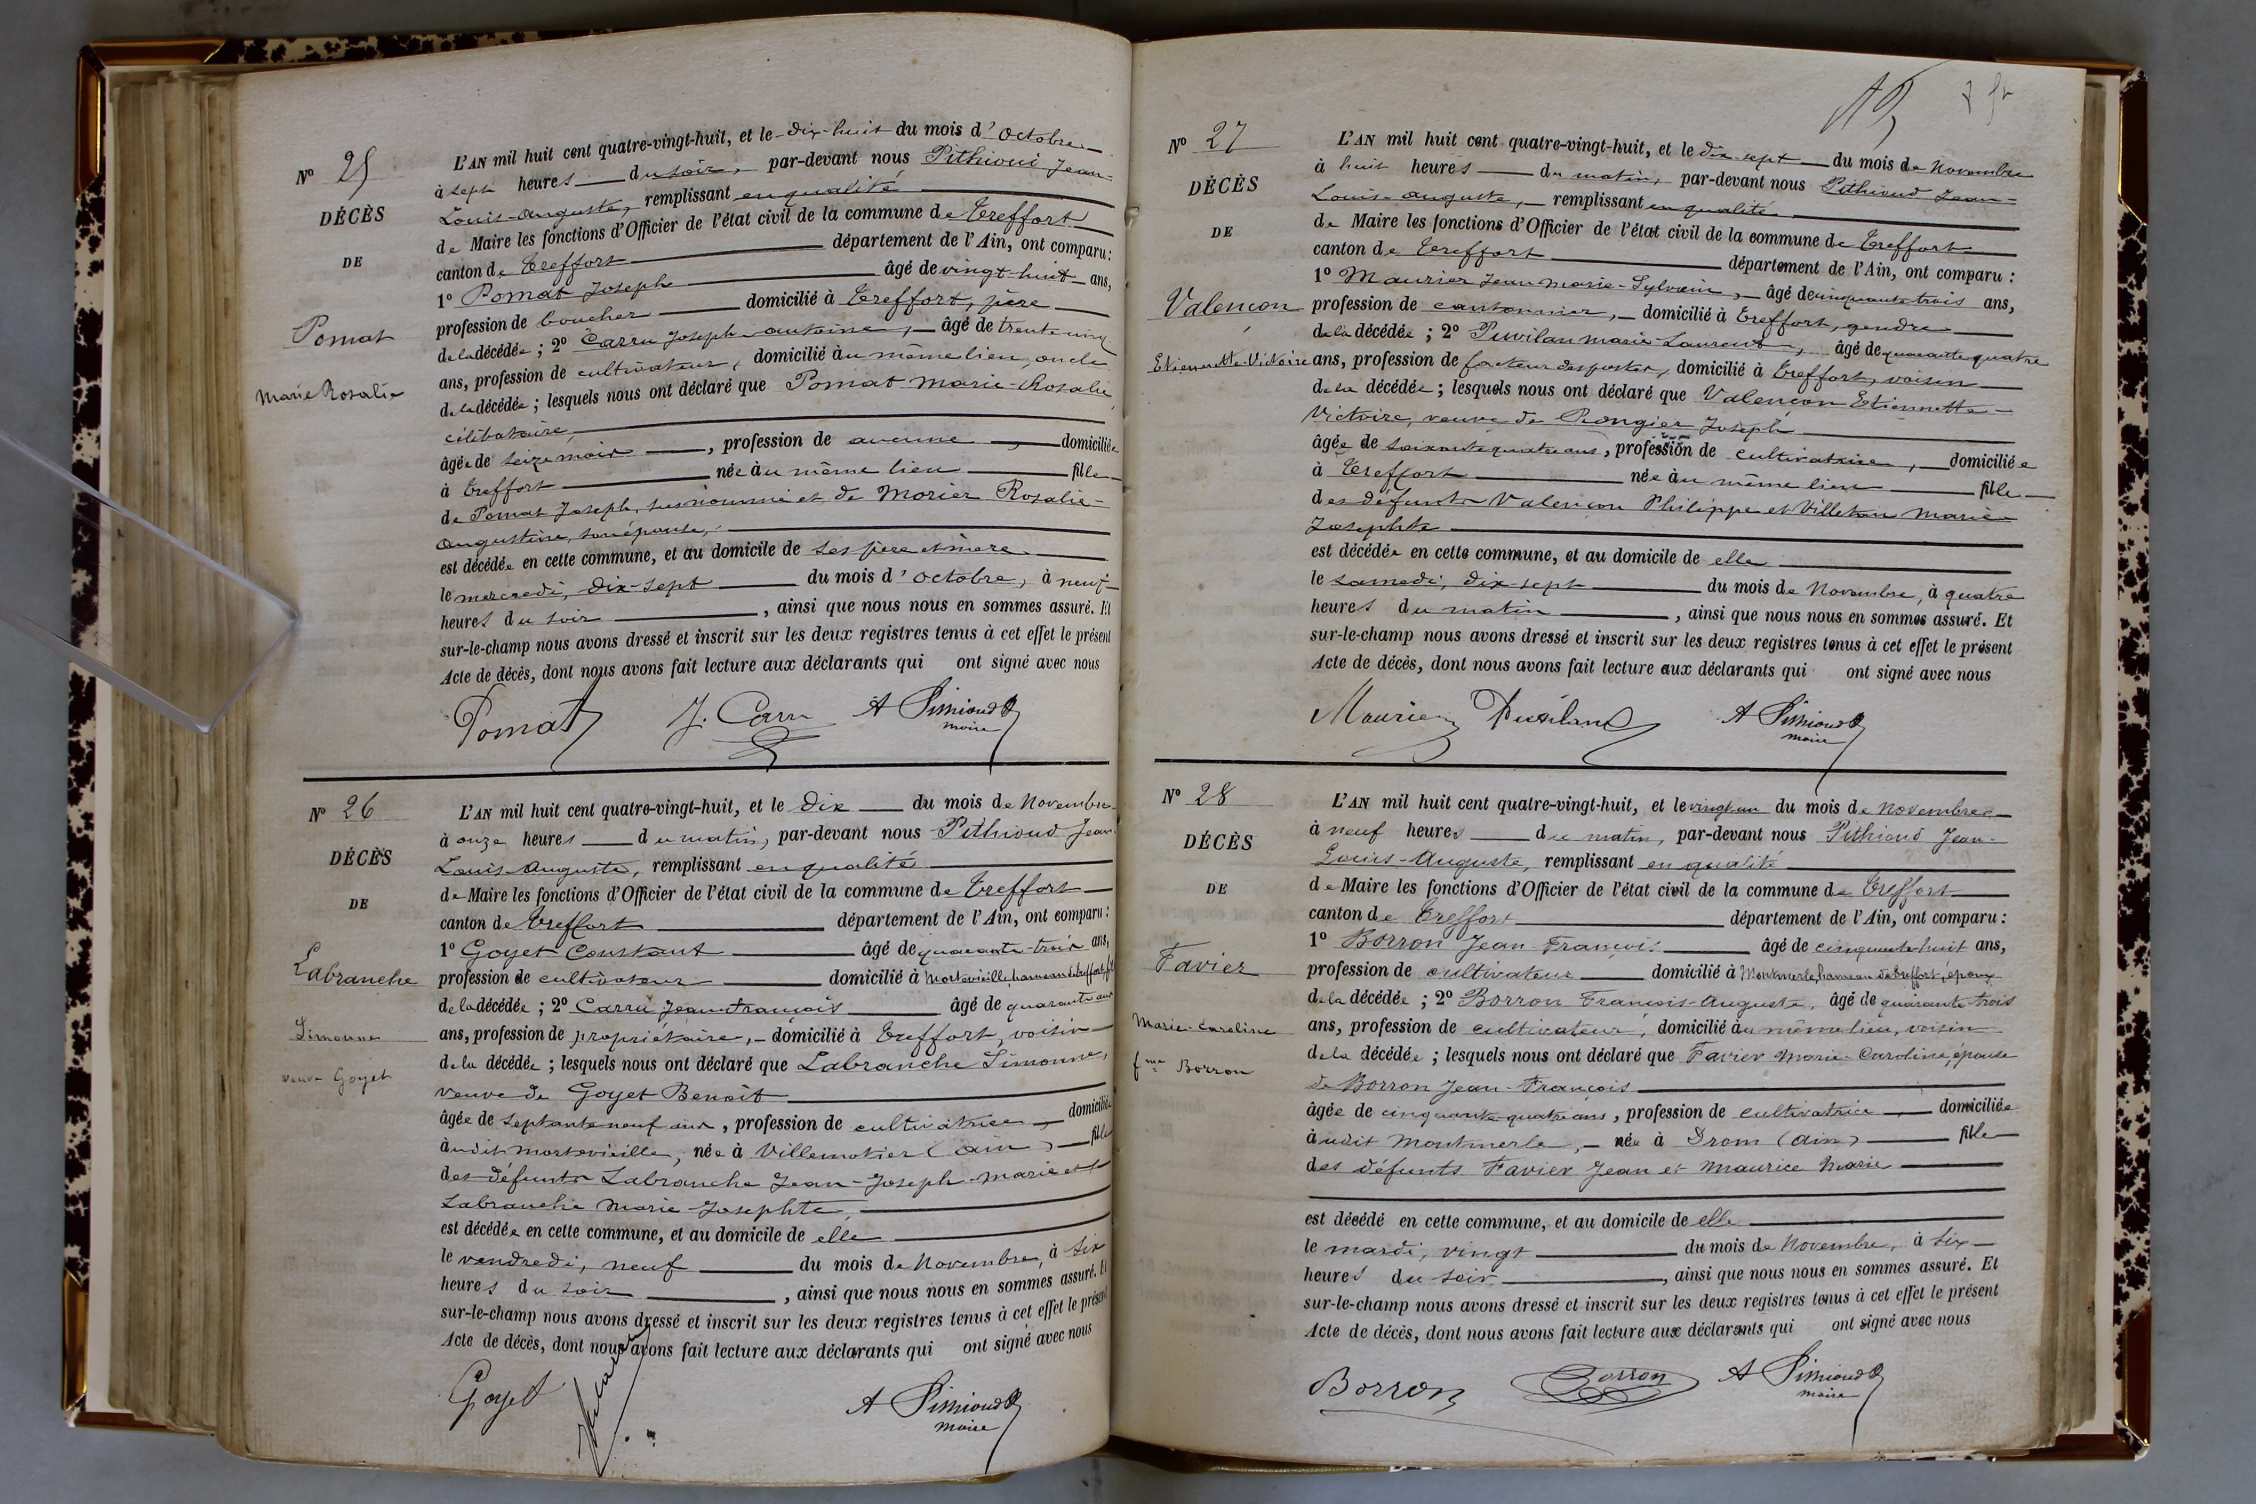 N° 25
DÉCÈS
DE
Pomat
Marie Rosalie
L'AN mil huit cent quatre-vingt-huit, et le dix-huit du mois d'octobre
à sept heures du soir, par-devant nous Pithioud Jean-
Louis-Auguste, remplissant en qualité
de Maire les fonctions d'Officier de l'état civil de la commune de Treffort
canton de Treffort département de l'Ain, ont comparu :
1° Pomat Joseph âgé de vingt-huit ans,
profession de boucher domicilié à Treffort, père
de la décédée ; 2° Carru Joseph-Antoine, âgé de trente cinq
ans, profession de cultivateur, domicilié au même lieu, oncle
de la décédée ; lesquels nous ont déclaré que Pomat Marie-Rosalie,
célibataire,
âgée de seize mois, profession de aucune, domiciliée
à Treffort née au même lieu fille
de Pomat Joseph, susnommé et de Morier Rosalie-
Augustine, son épouse,
est décédée en cette commune, et au domicile de ses père et mère
le mercredi, dix-sept du mois d'octobre, à neuf
heures du soir, ainsi que nous nous en sommes assuré. Et
sur-le-champ nous avons dressé et inscrit sur les deux registres tenus à cet effet le présent
Acte de décès, dont nous avons fait lecture aux déclarants qui ont signé avec nous
Pomat J. Carru A Pithioud
maire
N° 26
DÉCÈS
DE
Labranche
Simonne
veuve Goyet
L'AN mil huit cent quatre-vingt-huit, et le dix du mois de Novembre
à onze heures du matin, par-devant nous Pithioud Jean-
Louis-Auguste, remplissant en qualité
de Maire les fonctions d'Officier de l'état civil de la commune de Treffort
canton de Treffort département de l'Ain, ont comparu :
1° Goyet Constant âgé de quarante-trois ans,
profession de cultivateur domicilié à Mortevieille, hameau de Treffort, fils
de la décédée ; 2° Carru Jean-François âgé de quarante
ans, profession de propriétaire, domicilié à Treffort, voisin
de la décédée ; lesquels nous ont déclaré que Labranche Simonne,
veuve de Goyet Benoît
âgée de septante neuf ans, profession de cultivatrice, domiciliée
à udit Mortevieille, née à Villemotier (Ain) fille
des défunts Labranche Jean-Joseph-Marie et
Labranche Marie-Josephte,
est décédée en cette commune, et au domicile de elle
le vendredi, neuf du mois de Novembre, à six
heures du soir, ainsi que nous nous en sommes assuré. Et
sur-le-champ nous avons dressé et inscrit sur les deux registres tenus à cet effet le présent
Acte de décès, dont nous avons fait lecture aux déclarants qui ont signé avec nous
Goyet A Pithioud
maire
N° 27
DÉCÈS
DE
Valençon
Etiennette-Victoire
L'AN mil huit cent quatre-vingt-huit, et le dix-sept du mois de Novembre
à huit heures du matin, par-devant nous Pithioud Jean-
Louis-Auguste, remplissant en qualité
de Maire les fonctions d'Officier de l'état civil de la commune de Treffort
canton de Treffort département de l'Ain, ont comparu :
1° Maurier Jean Marie-Sylvain, âgé de cinquante trois ans,
profession de cantonnier, domicilié à Treffort, gendre
de la décédée ; 2° Puvilan Marie-Laurent, âgé de quarante quatre
ans, profession de facteur des postes, domicilié à Treffort, voisin
de la décédée ; lesquels nous ont déclaré que Valençon Etiennette-
Victoire, veuve de Rongier Joseph
âgée de soixante quatre ans, profession de cultivatrice, domiciliée
à Treffort née au même lieu fille
des défunts Valençon Philippe et Villeton Marie-
Josephte
est décédée en cette commune, et au domicile de elle
le samedi, dix-sept du mois de Novembre, à quatre
heures du matin, ainsi que nous nous en sommes assuré. Et
sur-le-champ nous avons dressé et inscrit sur les deux registres tenus à cet effet le présent
Acte de décès, dont nous avons fait lecture aux déclarants qui ont signé avec nous
Maurier Puviland A Pithioud
maire
N° 28
DÉCÈS
DE
Favier
Marie-Caroline
fme Borron
L'AN mil huit cent quatre-vingt-huit, et le vingt un du mois de novembre
à neuf heures du matin, par-devant nous Pithioud Jean-
Louis-Auguste, remplissant en qualité
de Maire les fonctions d'Officier de l'état civil de la commune de Treffort
canton de Treffort département de l'Ain, ont comparu :
1° Borron Jean-François âgé de cinquante-huit ans,
profession de cultivateur domicilié à Montmerle, hameau de Treffort, époux
de la décédée ; 2° Borron François-Auguste, âgé de quarante trois
ans, profession de cultivateur, domicilié au même lieu, voisin
de la décédée ; lesquels nous ont déclaré que Favier Marie-Caroline, épouse
de Borron Jean-François
âgée de cinquante-quatre ans, profession de cultivatrice, domiciliée
à udit Montmerle, née à Drom (Ain) fille
des défunts Favier Jean et Maurice Marie
est décédé en cette commune, et au domicile de elle
le mardi, vingt du mois de Novembre, à six
heures du soir, ainsi que nous nous en sommes assuré. Et
sur-le-champ nous avons dressé et inscrit sur les deux registres tenus à cet effet le présent
Acte de décès, dont nous avons fait lecture aux déclarants qui ont signé avec nous
Borron Borron A Pithioud
maire